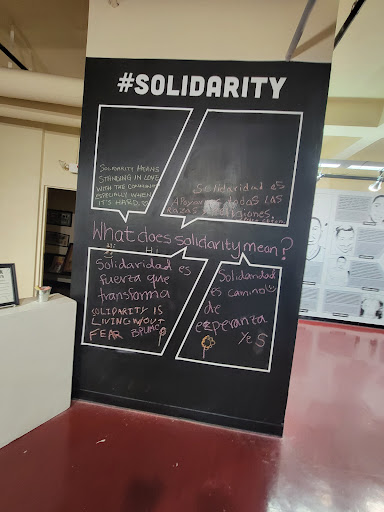 #SOLIDARITY
SOLIDARITY MEANS
STANDING IN LOVE
WITH THE COMMUNITY
ESPECIALLY WHEN
IT'S HARD.
Solidaridad es
Apoyar a todas las
Razas y religiones.
What does solidarity mean?
Solidaridad es
fuerza que
transforma
SOLIDARITY IS
LIVING W/OUT
FEAR
Solidaridad
es camino
de
esperanza
Yes